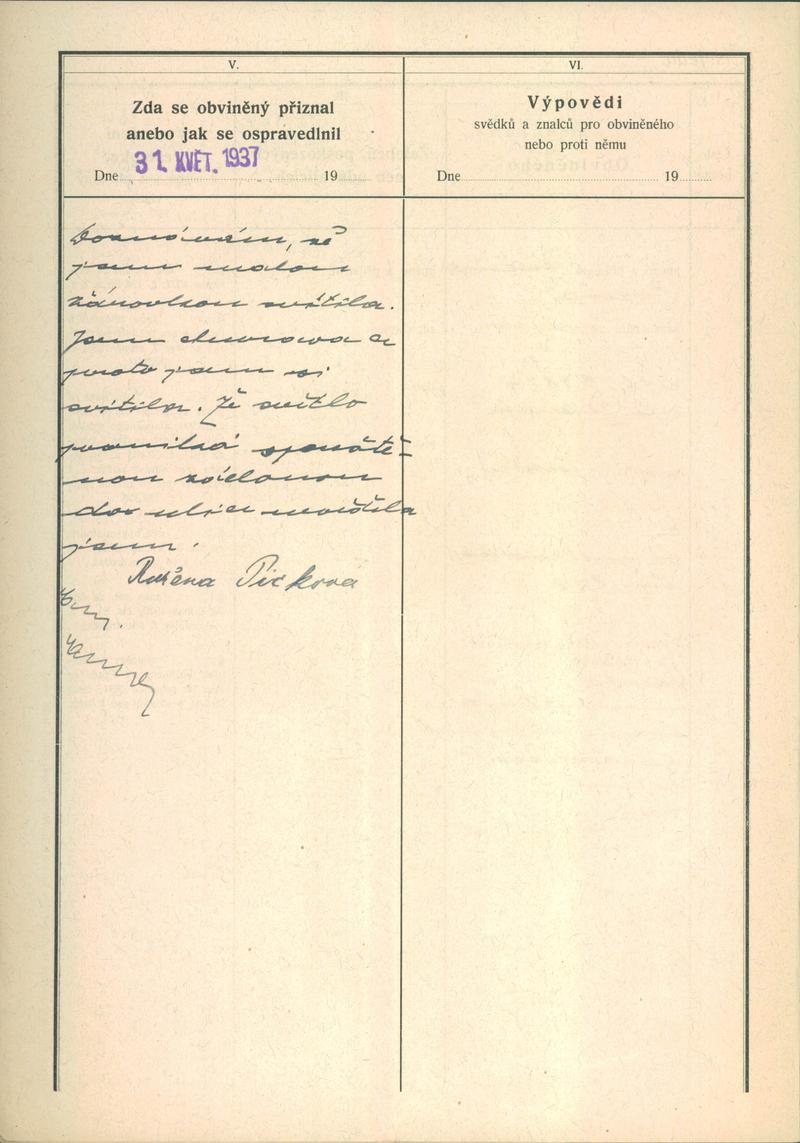 V.
Zda se obviněný přiznal
anebo jak se ospravedlnil
Dne 31. KVĚT. 1937 19
Doznávám, že
jsem malou
žárovkou svítila.
Jsem churava a
proto jsem si
svítila. Že světlo
proniká spouště-
nou záclonou
do ulice nevěděla
jsem.
Růžena Picková
VI.
Výpovědi
svědků a znalců pro obviněného
nebo proti němu
Dne 19